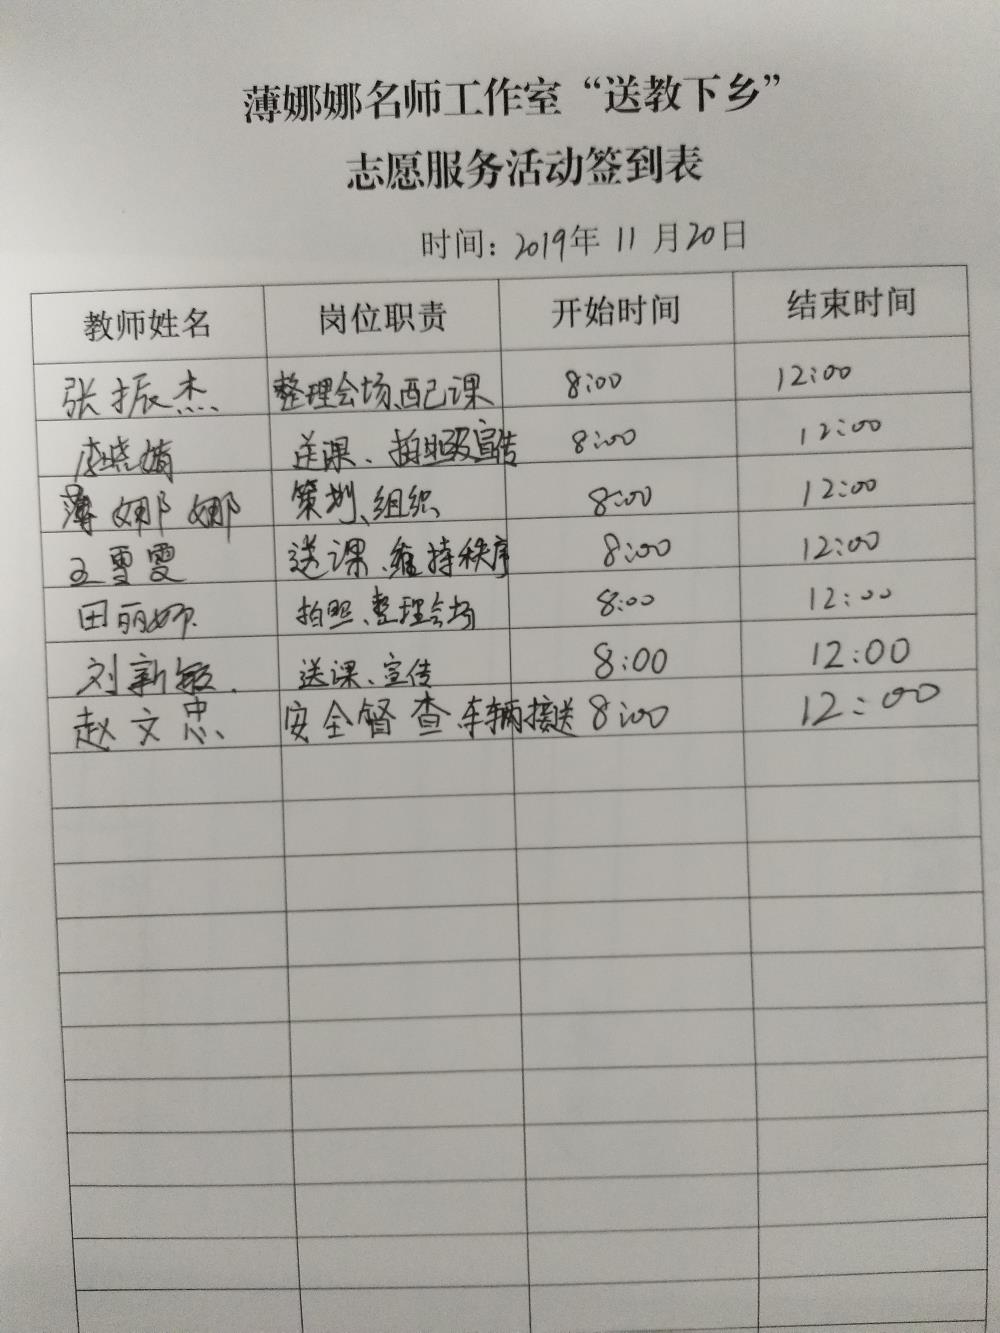 薄娜娜名师工作室“送教下乡”
志愿服务活动签到表
时间：2019年 11 月20日
教师姓名 岗位职责 开始时间 结束时间
张振杰 整理会场、配课 8:00 12:00
李晓婧 送课、拍照及宣传 8:00 12:00
薄娜娜 策划、组织 8:00 12:00
王雪雯 送课、维持秩序 8:00 12:00
田丽娜 拍照、整理会场 8:00 12:00
刘新敏 送课、宣传 8:00 12:00
赵文忠 安全督查、车辆接送 8:00 12:00